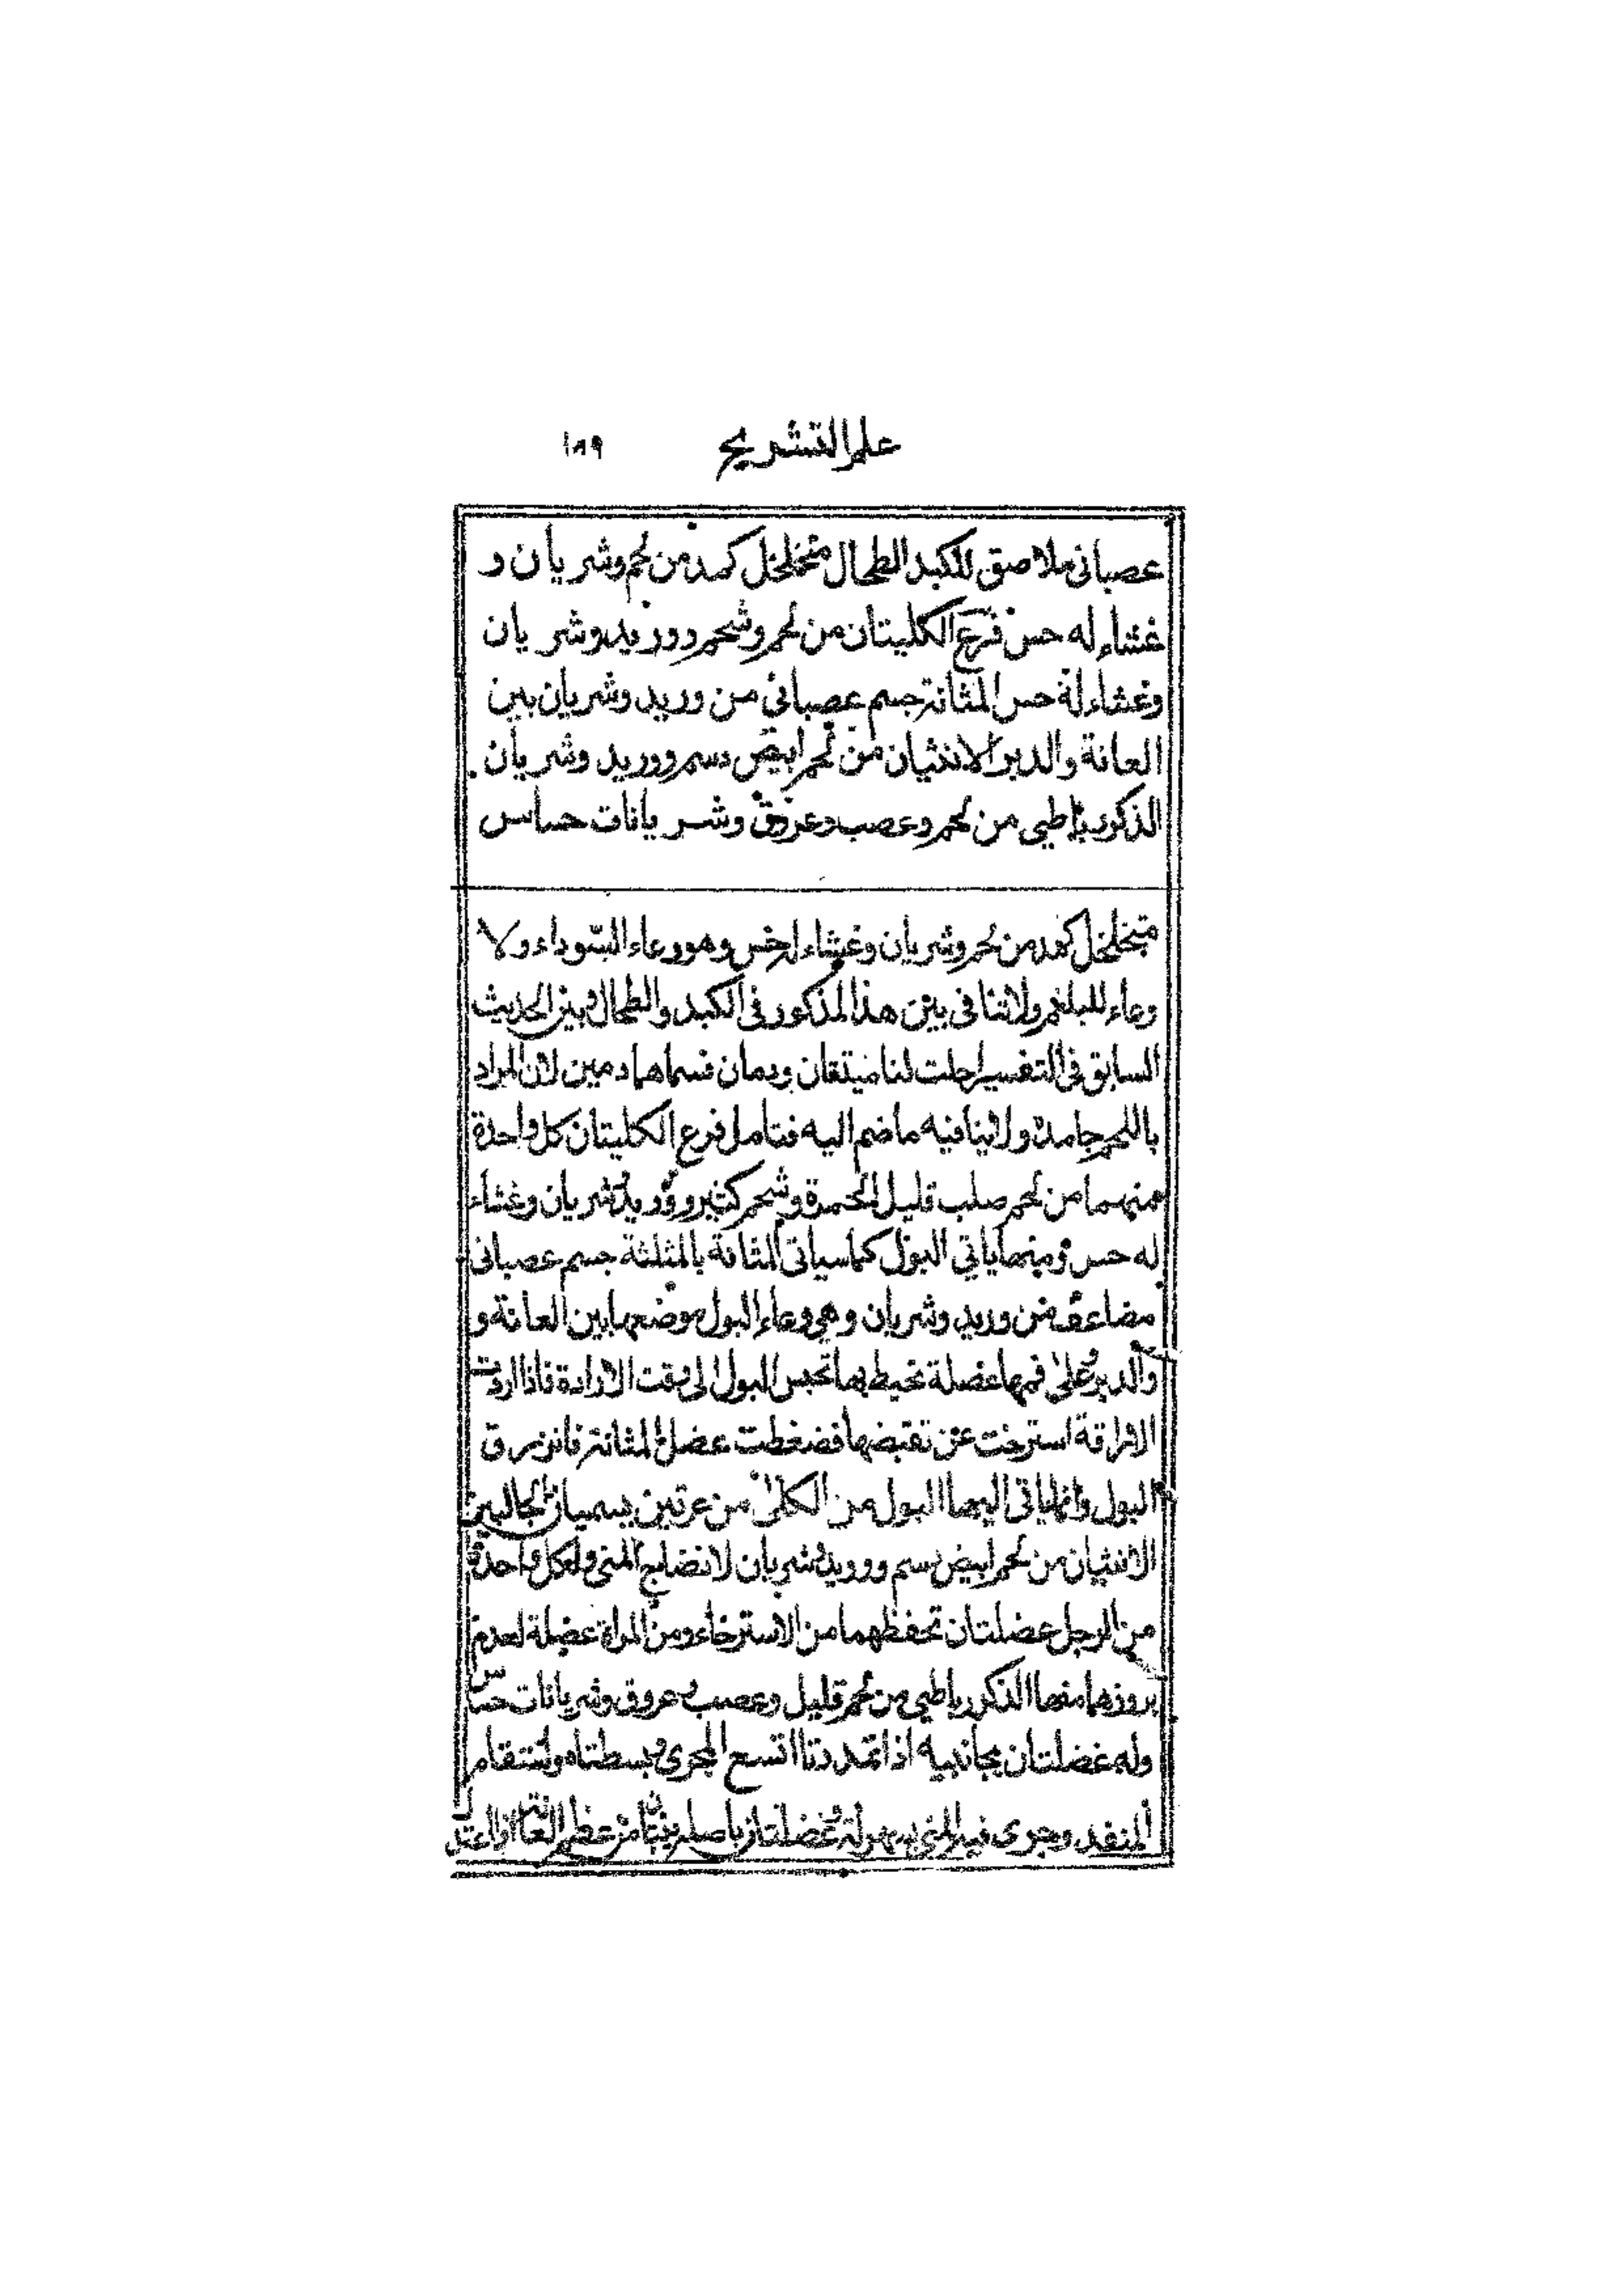 علم التشريح ١٨٩
عصبانى ملاصق للكبد الطحال متخلخل كمد من لحم وشريان و
غشاء له حس فرع الكليتان من لحم وشحم ووريد وشريان
وغشاء له حس المثانة جسم عصبانى من وريد وشريان بين
العانة والدبر الانثيان من لحم ابيض دسم ووريد وشريان
الذكر رباطى من لحم وعصب وعروق وشريانات حساس
متخلخل كمد من لحم وشريان وغشاء له حس وهو وعاء السّوداء ولا
وعاء للبلغم ولا تنافى بين هذا المذكور فى الكبد والطحال وبين الحديث
السابق فى التفسير احلت لنا ميتتان ودمان فسماهما دمين لان المراد
باللحم جامد ولا ينافيه ما ضم اليه فتامل فرع الكليتان كل واحدة
منهما من لحم صلب قليل الحمرة وشحم كثير ووريد وشريان وغشاء
له حس ومنهما ياتى البول كما سياتى المثانة بالمثلثة جسم عصبانى
مضاعف من وريد وشريان وهى وعاء البول موضعها بين العانة و
والدبر وعلى فمها عضلة تحيط بها تحبس البول الى وقت الارادة فاذا اردت
الاراقة استرخت عن تقبضها فضغطت عضل المثانة فانزرق
البول وانما ياتى اليها البول من الكلى من عرقين يسميان الحالبين
الانثيان من لحم ابيض دسم ووريد وشريان لانضاج المنى ولكل واحدة
من الرجل عضلتان تحفظهما من الاسترخاء ومن المراة عضلة لعدم
بروزهما منها الذكر رباطى من لحم قليل وعصب وعروق وشريانات حساس
وله عضلتان بجانبيه اذا تمددتا اتسع المجرى وبسطتاه واستقام
المنفد وجرى فيه المنى بسهولة وعضلتان باصله ينبتان من عظم العانة اذا اعتدل